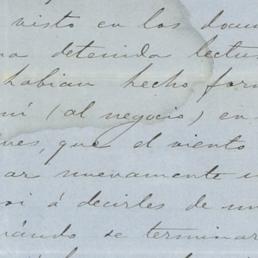 visto en los docum
na detenida lectu
habian hecho for
mi (al negocio) en
nes, que el viento
ar nuevamente u
oi á decirles de un
uándo se terminar